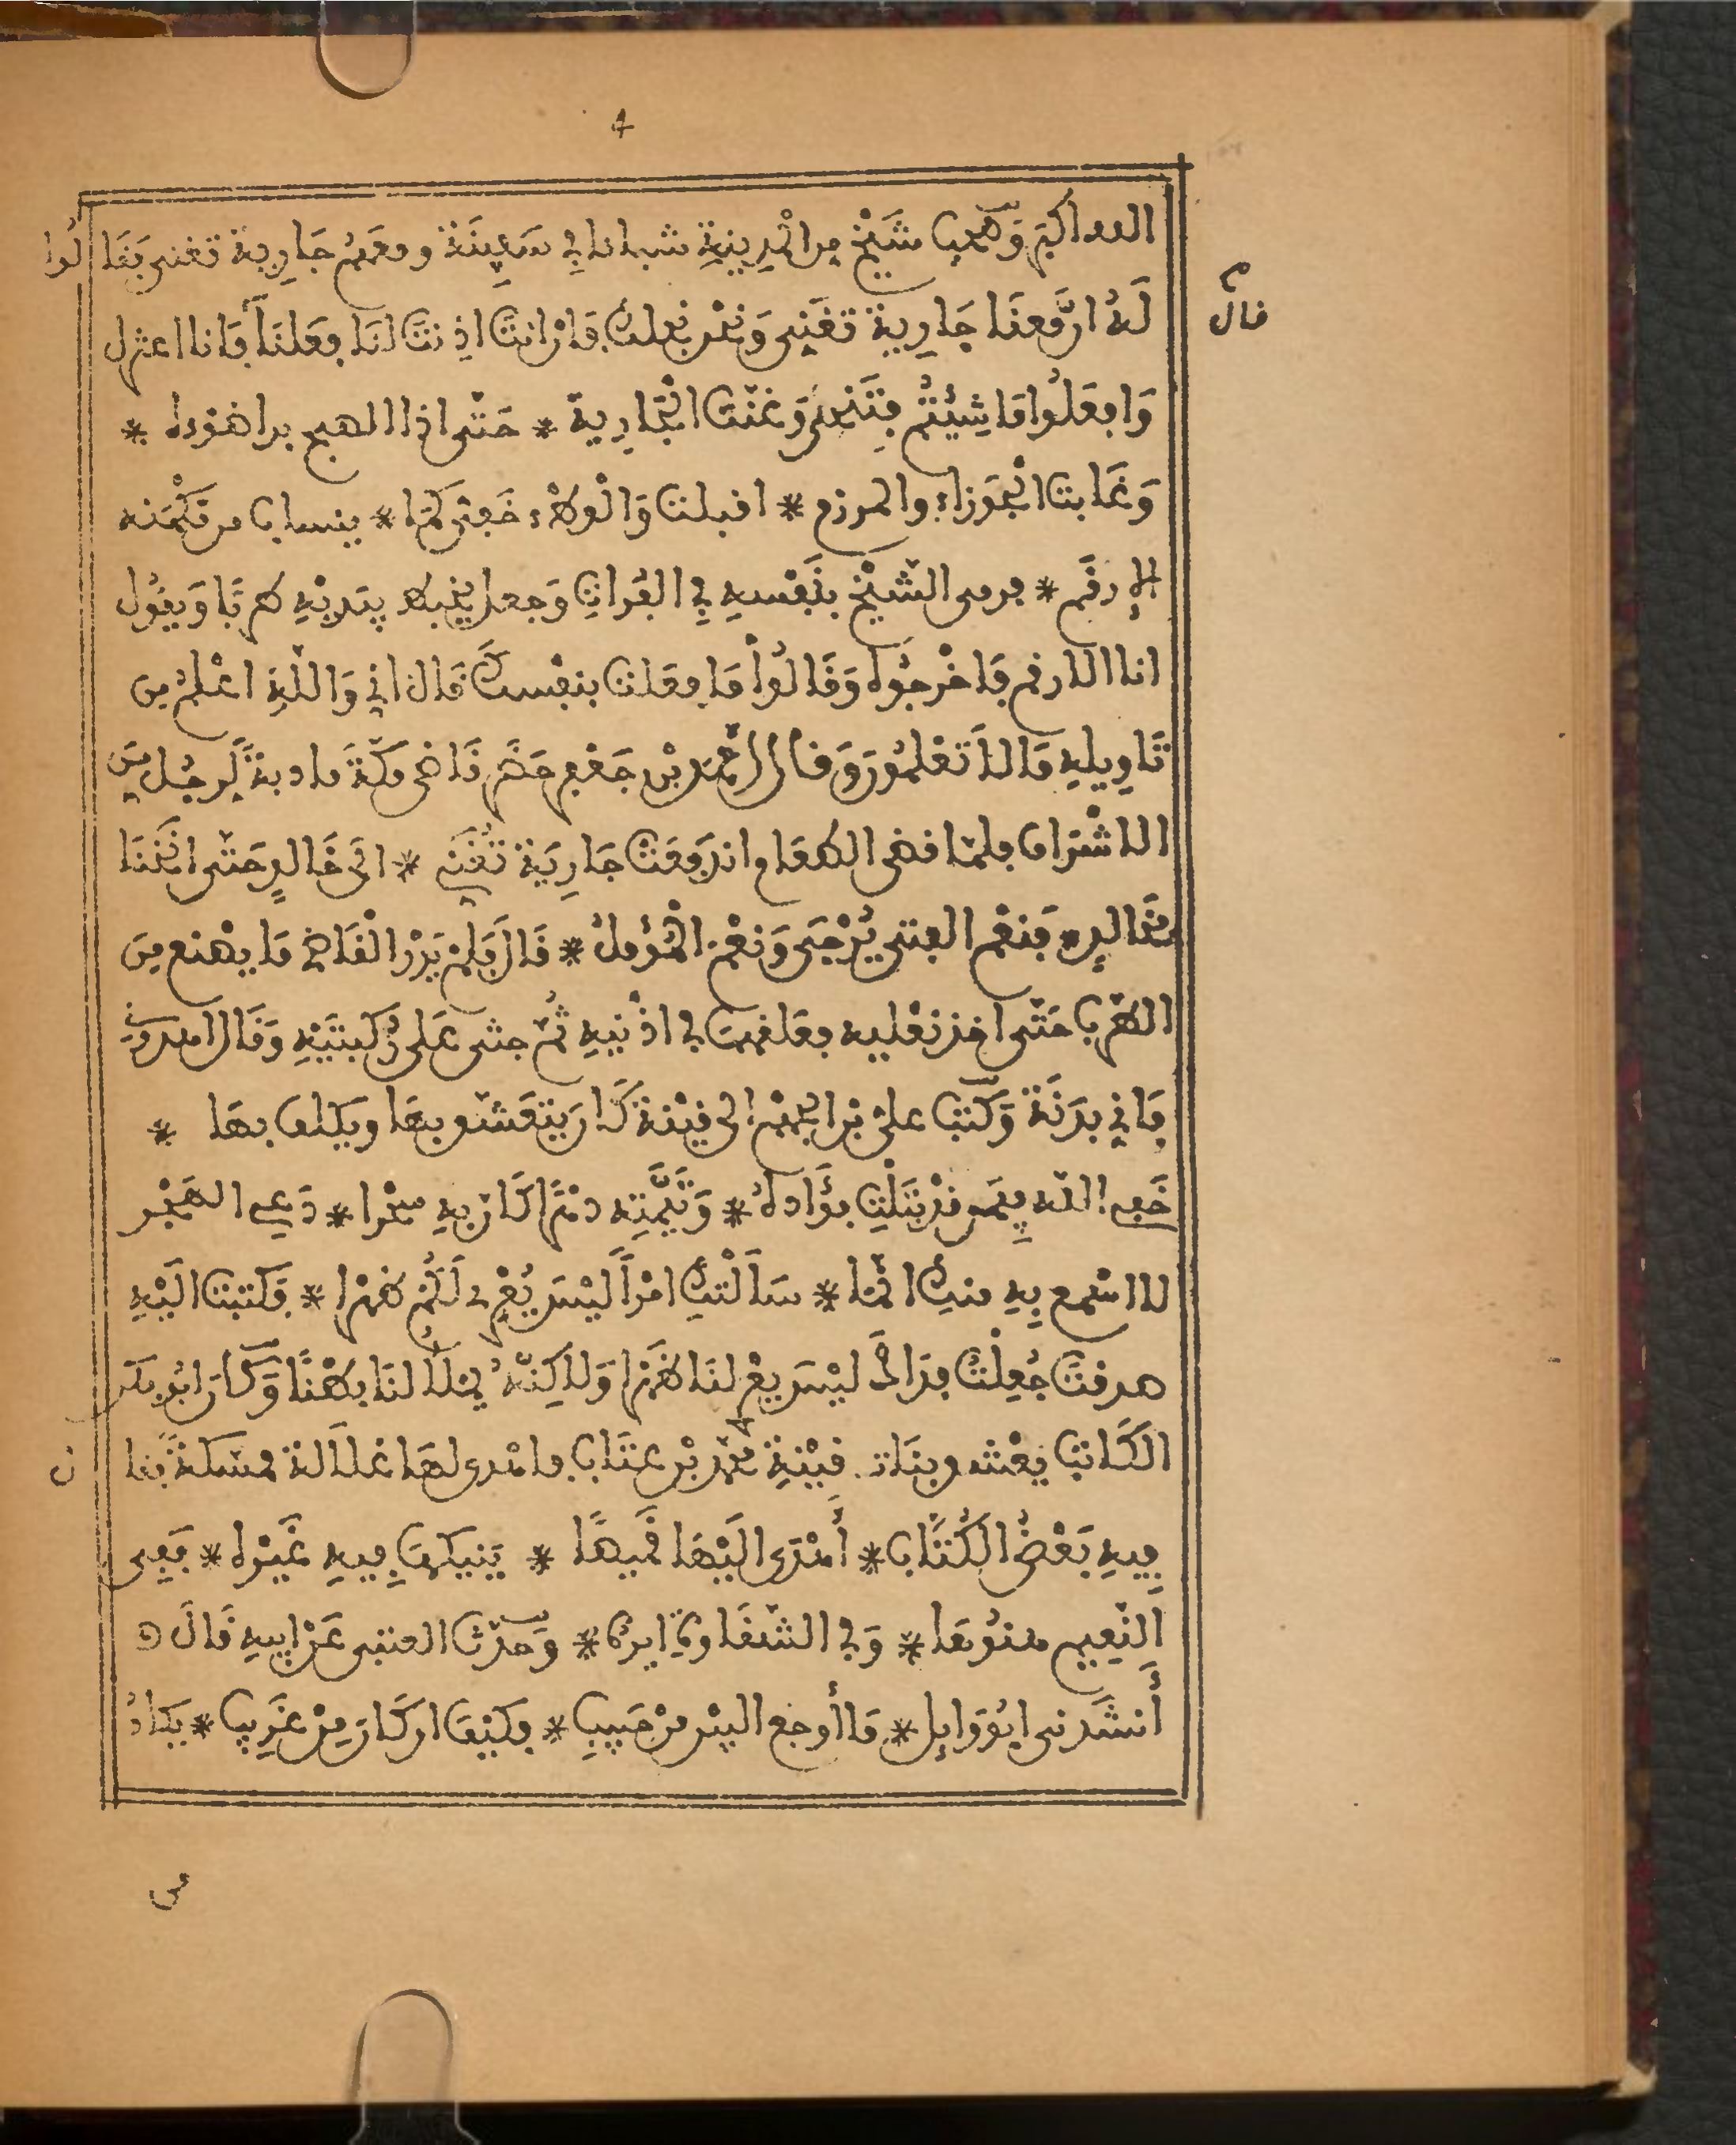 4
الله اكبر وَصحب شَيْخ من الْمدِينَةِ شبابا في سَفِينَة ومعَهُم جَارِية تغنى فَقَالُوا
قال
لَهُ ان مَّعنَا جَارِية تغَنِى وَنحْن نجلك فَان انتَ اذِ نتَ لنَا فِعَلنَا فَانا اعتزل
وَافعَلُوا مَا شِيْتُم فتَنحى وَغنّت الْجَارِية * حَتّى اذا الصبح بدا ضوْءه *
وَغَابت الْجَوزاءُ والمرزم * اقبلت وَالْوطْء خَفِىّ كَمَا * ينساب من مَكْمَنه
الارقَم * فرمى الشّيْخ بنَفْسهِ فِي الفُرَاتِ وَجعل يخبط بيَديْهِ طرَبًا وَيقُول
انا الارقم فَاخْرجُوه وَقَالُوا مَا فعَلت بنفْسك قَال اني وَاللَّهِ اعْلمُ من
تَاوِيلهِ مَا لا تَعْلمُون وَقال احْمَد بْن جَعْفر حَضَر قَاضى مَكّةَ مادبةً لِرجُل مِن
الاشْرَاف فلمّا قضى الطعَام اندَفعَتْ جَارِيَة تُغَنِي * الَى خَالِدٍ حَتّى انَخْنَا
بِخَالِدٍ * فَنعْم الفتى يُرْجَى وَنعْمَ الْمُؤملُ * قَال فَلمْ يَدْر الْقَاضى مَا يصْنع مِن
الطّرَب حَتّى اخذ نعْليه فعَلقهمَا في اذْنيهِ ثُمّ جثى عَلى رُكبتَيْهِ وَقَال اهدونى
فَاني بدَنَة وَكَتب علىّ بن الجهْم الى قيْنة كَان يتعَشّو بهَا ويكلف بهَا *
خَفِي اللّه فِيمَن قدْ تبَلْتِ فؤَاده * وَتَيَّمْتِه دهْرًا كَان بهِ سحْرا * دَعِي الهَجْر
لا اسْمع بِهِ منكِ انّمَا * سَاَلْتكِ امْرًا ليْسَ يُعْرِى لَكُم ظهْرا * فَكتبَت الَيْهِ
صدقتَ جُعِلْتُ فِدَاكَ ليْسَ يعْر لنَا ظَهْرا وَلاكِنَّهُ يَمْلا لنَا بَطْنًا وَكَان ابُو بكر
الكَاتب يعْشو بنَات قيْنةِ محمَّد بْن عتَّاب فاهْدى لهَا غلاَلة مُمَسكة فَقال
فِيهِ بَعْضُ الكُتَّاب * أَهْدَى الَيْهَا قَمِيصًا * يَنيكهَا فِيهِ غَيْرُه * فَفِى
النّعِيم متوُعهَا * وَفي الشّقَا وَايره * وَحدّث العتبى عَنْ ابِيهِ قَالَ
أَنشَدنى ابُو وَايل * مَا أوجع البيْن من حَبِيب * فكيْفَ ان كَانَ مِنْ غَرِيب * يَكادُ